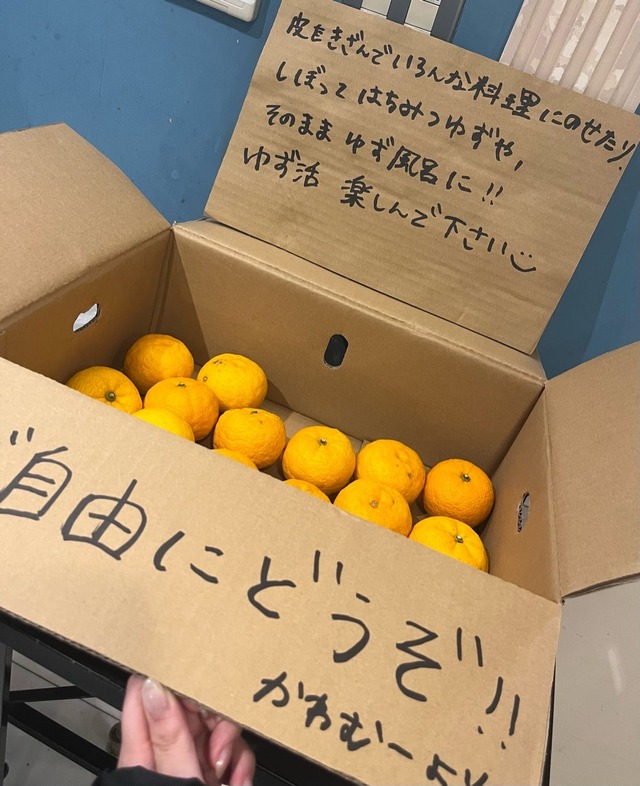 皮をきざんでいろんな料理にのせたり、
しぼって はちみつゆずや,
そのまま ゆず風呂に!!
ゆず活 楽しんで下さい
゛自由にどうぞ!!
かわむーより